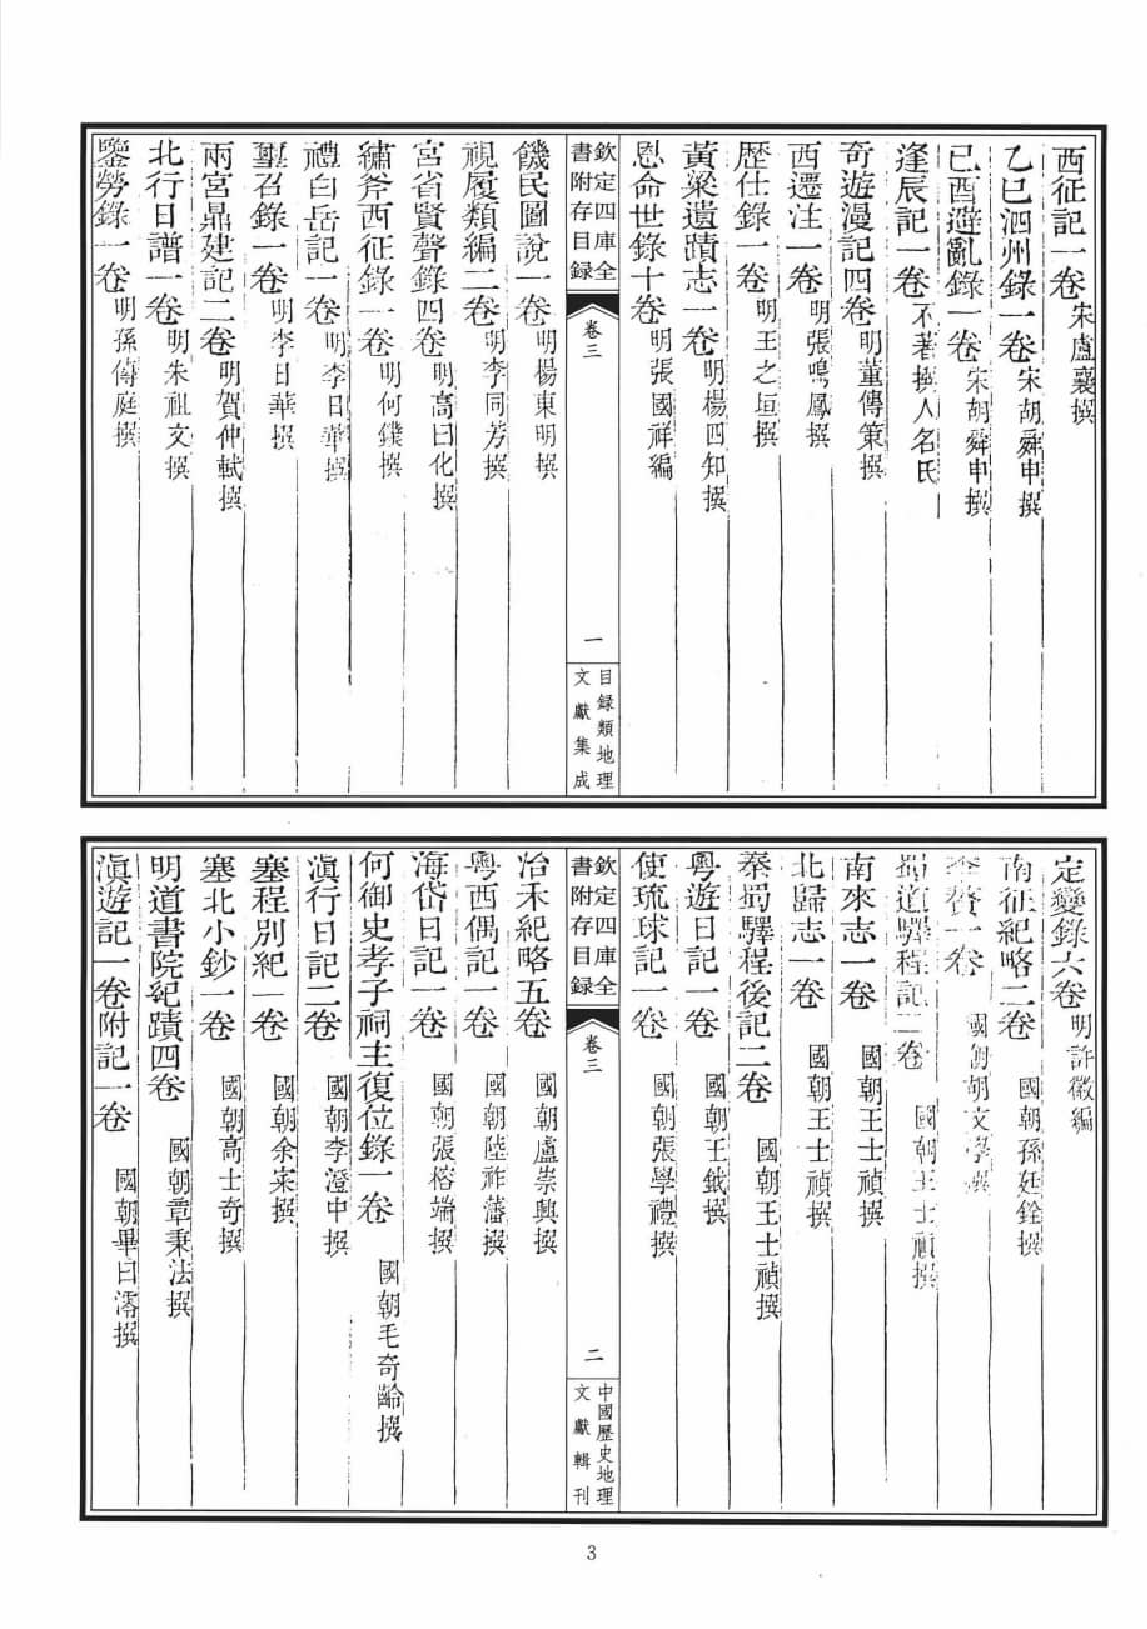 西征記一卷宋盧襄撰
乙巳泗州錄一卷宋胡舜申撰
己酉避亂錄一卷宋胡舜申撰
逢辰記一卷不著撰人名氏
奇遊漫記四卷明董傳策撰
西遷注一卷明張鳴鳳撰
歷仕錄一卷明王之垣撰
黃粱遺蹟志一卷明楊四知撰
恩命世錄十卷明張國祥編
欽定四庫全
書附存目録
卷三
一
目録類地理
文獻集成
饑民圖說一卷明楊東明撰
視履類編二卷明李同芳撰
宮省賢聲錄四卷明高曰化撰
繡斧西征錄一卷明何鏌撰
禮白岳記一卷明李日華撰
璽召錄一卷明李日華撰
兩宮鼎建記二卷明賀仲軾撰
北行日譜一卷明朱祖文撰
鑒勞錄一卷明孫傳庭撰
定變錄六卷明許徵編
南征紀略二卷國朝孫廷銓撰
李贅一卷國朝胡文學撰
蜀道驛程記二卷國朝王士禎撰
南來志一卷國朝王士禎撰
北歸志一卷國朝王士禎撰
秦蜀驛程後記二卷國朝王士禎撰
粵遊日記一卷國朝王鉞撰
使琉球記一卷國朝張學禮撰
欽定四庫全
書附存目録
卷三
二
中國歷史地理
文獻輯刊
冶禾紀略五卷國朝盧崇興撰
粵西偶記一卷國朝陸祚蕃撰
海岱日記一卷國朝張榕端撰
何御史孝子祠主復位錄一卷國朝毛奇齡撰
滇行日記二卷國朝李澄中撰
塞程別紀一卷國朝余寀撰
塞北小鈔一卷國朝高士奇撰
明道書院紀蹟四卷國朝章秉法撰
滇遊記一卷附記一卷國朝畢曰澪撰
3